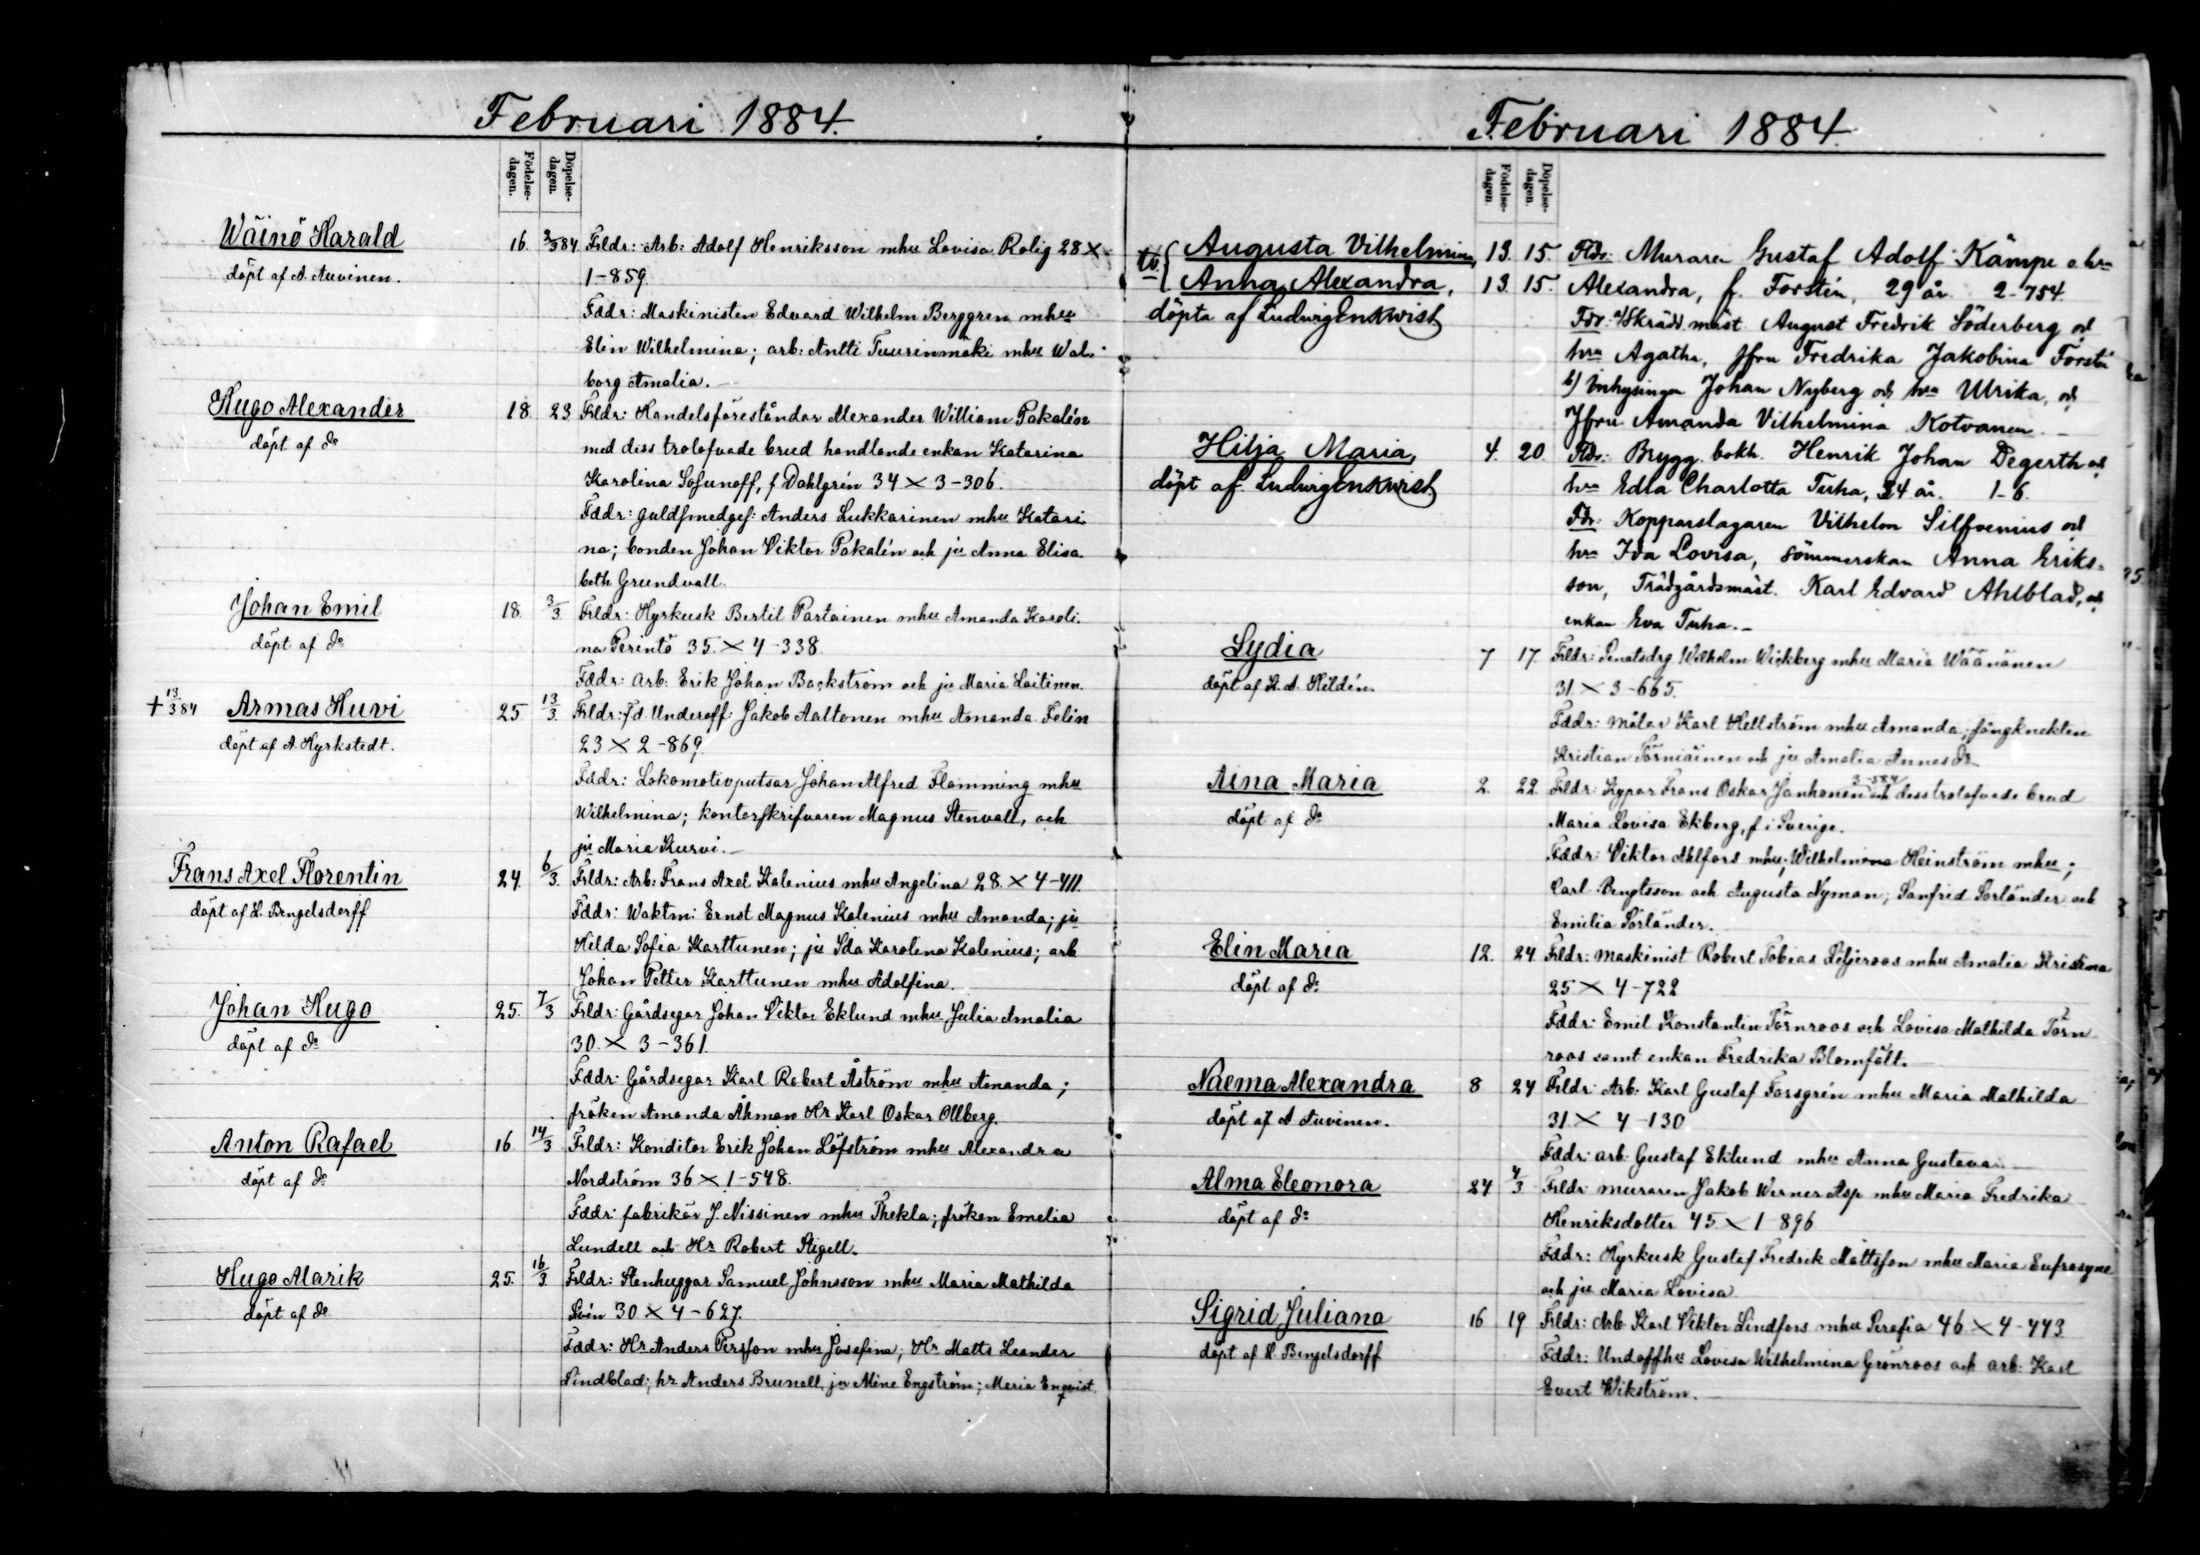 Februari 1884.
Födelse-dagen.
Döpelse-dagen.
Wäinö Harald
döpt af A. Auvinen.
16. 2/3 84. Frldr: Arb: Adolf Henriksson mhu Lovisa Rolig 28 X
1-859.
Fddr: Maskinisten Edvard Wilhelm Berggren mhu
Elin Wilhelmina; arb: Antti Tuurinmäki mhu Wal-
borg Amalia.
Hugo Alexander
döpt af do
18. 23. Frldr: Handelsföreståndar Alexander William Pakalén
med dess trolofvade brud handlande enkan Katarina
Karolina Sofunoff, f. Dahlgrén 34 X 3-306.
Fddr: guldsmedges: Anders Lukkarinen mhu Katari-
na; bonden Johan Viktor Pakalén och ju Anna Elisa-
beth Grundvall.
Johan Emil
döpt af do
18. 3/3. Frldr: Hyrkusk Bertil Partainen mhu Amanda Karoli-
na Perintö 35. X 4-338.
Fddr: Arb: Erik Johan Backström och ju Maria Laitinen.
+ 13/3 84 Armas Huvi
döpt af A. Hyrkstedt.
25 13/3. Frldr: fd. Underoff: Jakob Aaltonen mhu Amanda Felin
23 X 2-869.
Fddr: Lokomotivputsar Johan Alfred Flamming mhu
Wilhelmina; kontorskrifvaren Magnus Stenvall, och
ju Maria Kurvi.
Frans Axel Florentin
döpt af H. Bengelsdorff
24. 6/3. Frldr: Arb: Frans Axel Kalenius mhu Angelina 28. X 4-411.
Fddr: Waktm: Ernst Magnus Kalenius mhu Amanda; ju
Hilda Sofia Karttunen; ju Ida Karolina Kalenius; arb
Johan Petter Karttunen mhu Adolfina.
Johan Hugo
döpt af do
25. 7/3 Frldr: Gårdsegar Johan Viktor Eklund mhu Julia Amalia
30. X 3-361.
Fddr: Gårdsegar Karl Robert Åström mhu Amanda;
fröken Amanda Åhman Hr Karl Oskar Ollberg.
Anton Rafael
döpt af do
16 14/3 Frldr: Konditor Erik Johan Löfström mhu Alexandra
Nordström 36 X 1-548.
Fddr: fabrikör J. Nissinen mhu Thekla; fröken Emelia
Lundell och Hr Robert Stigell.
Hugo Alarik
döpt af do
25. 16/3. Frldr: Stenhuggar Samuel Johnsson mhu Maria Mathilda
Svén 30 X 4-627.
Fddr: Hr Anders Persson mhu Josefina; Hr Matts Leander
Lindblad; hr Anders Brunell, ju Mine Engström; Maria Enqvist.
Februari 1884.
Födelse-dagen.
Döpelse-dagen.
tv. Augusta Vilhelmina,
Anna Alexandra,
döpta af Ludvig Enkwist
13. 15. Fldr. Muraren Gustaf Adolf Kämpe o. hu
13. 15. Alexandra, f. Forstén, 29 år. 2-754.
Fdr: a/ Skrädd.mäst. August Fredrik Söderberg och
hu Agatha, Jfru Fredrika Jakobina Forstén
b/ Inhysingen Johan Nyberg och hu Ulrika, och
Jfru Amanda Vilhelmina Kotvanen.
Hilja Maria,
döpt af Ludvig Enkwist
4. 20. Fldr: Brygg. bokh. Henrik Johan Degerth och
hu Edla Charlotta Turha, 34 år. 1-6.
Fdr: Kopparslagaren Vilhelm Silfvenius och
hu Ida Lovisa, Sömmerskan Anna Eriks-
son, Trädgårdsmäst. Karl Edvard Ahlblad, och
enkan Eva Turha.
Lydia
döpt af K. A. Hildén.
7 17. Frldr: Senatsdrg Wilhelm Wickberg mhu Maria Wäänänen
31. X 3-665.
Fddr: Målar Karl Hellström mhu Amanda; fångknekten
Kristian Törniäinen och ju Amalia Annasdr
Aina Maria
döpt af do
2. 22. Frldr: Kypar Frans Oskar Janhonen 3-584 och dess trolofvade brud
Maria Lovisa Ekberg, f. i Sverige.
Fddr: Viktor Ahlfors mhu; Wilhelmina Heinström mhu;
Carl Bengtsson och Augusta Nyman; Sanfred Sorlander och
Emilia Sorlander.
Elin Maria
döpt af do
12. 24 Frldr: Maskinist Robert Tobias Liljeroos mhu Amalia Kristina
25 X 4-722
Fddr: Emil Konstantin Törnroos och Lovisa Mathilda Törn-
roos samt enkan Fredrika Blomfält.
Naema Alexandra
döpt af A Auvinen.
8 24 Frldr: Arb: Karl Gustaf Forsgrén mhu Maria Mathilda
31 X 4-130
Fddr: arb: Gustaf Eklund mhu Anna Gustava.
Alma Eleonora
döpt af do
24 4/3 Frldr: muraren Jakob Werner Asp mhu Maria Fredrika
Henriksdotter 45 X 1-896
Fddr: Hyrkusk Gustaf Fredrik Mattsson mhu Maria Eufrosyne
och ju Maria Lovisa
Sigrid Juliana
döpt af H. Bengelsdorff
16 19 Frldr: Arb. Karl Viktor Lindfors mhu Serafia 46 X 4-443
Fddr: Undoffhu Lovisa Wilhelmina Grönroos och arb: Karl
Evert Wikström.